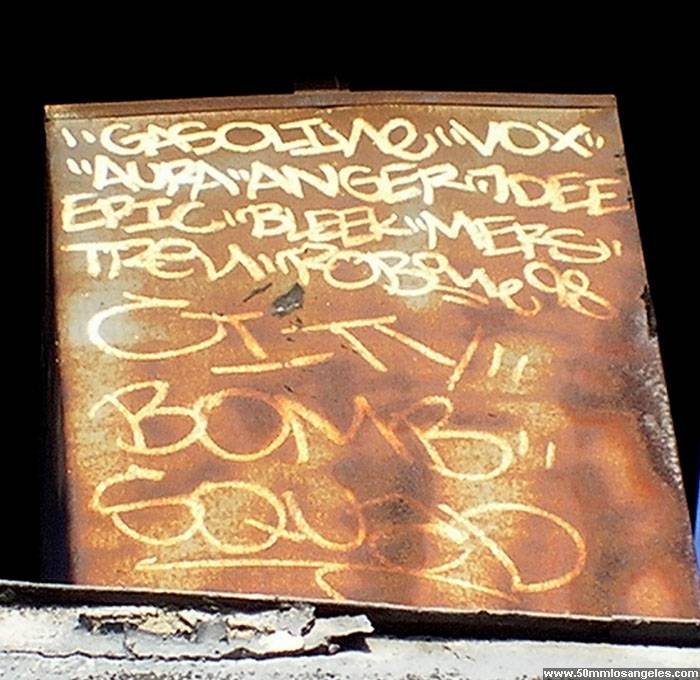 "GASOLINE" VOX"
"AURA" ANGER" 7DEE
EPIC" BLEEK" MERS"
TREN" "ROBONE 98
CITY"
BOMB"
SQUAD
www.50mmlosangeles.com